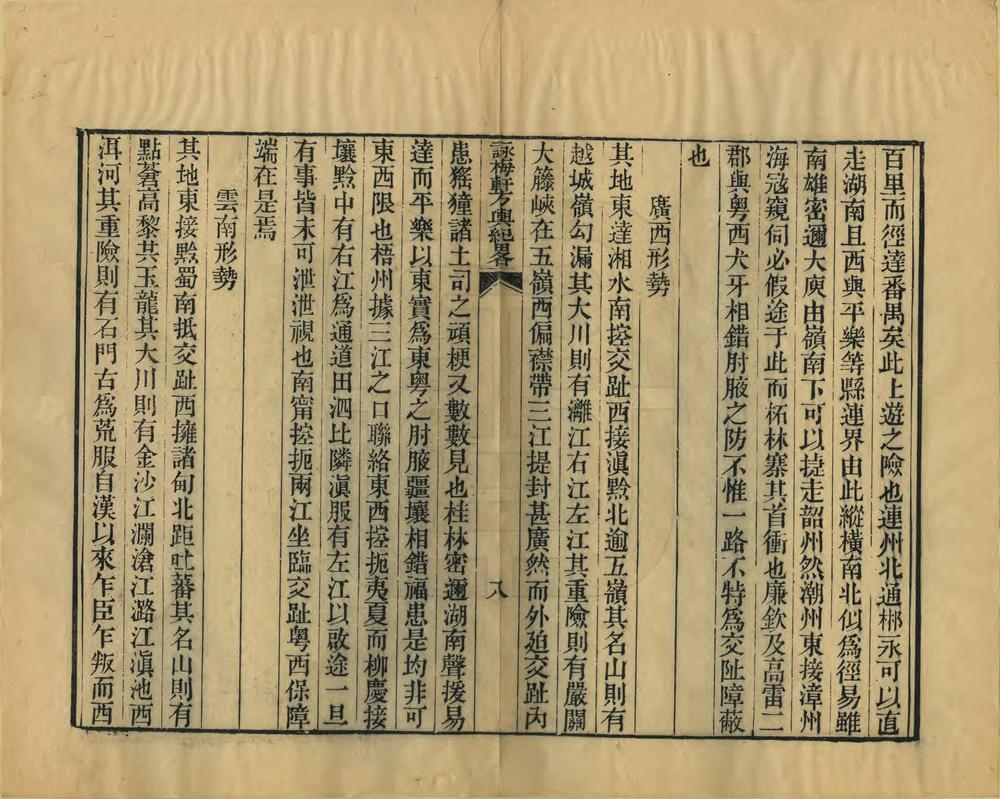 百里而徑達番禺矣此上遊之險也連州北通郴永可以直
走湖南且西與平樂等縣連界由此縱橫南北似爲徑易雖
南雄密邇大庾由嶺南下可以捷走韶州然潮州東接漳州
海寇窺伺必假途于此而柘林寨其首衝也廉欽及高雷二
郡與粤西犬牙相錯肘腋之防不惟一路不特爲交阯障蔽
也
廣西形勢
其地東達湘水南控交趾西接滇黔北逾五嶺其名山則有
越城嶺勾漏其大川則有灕江右江左江其重險則有嚴關
大籐峽在五嶺西偏襟帶三江提封甚廣然而外廹交趾內
詠梅軒方輿紀畧
八
患猺獞諸土司之頑梗又數數見也桂林密邇湖南聲援易
達而平樂以東實爲東粤之肘腋疆壤相錯福患是均非可
東西限也梧州據三江之口聯絡東西控扼夷夏而柳慶接
壤黔中有右江爲通道田泗比隣滇服有左江以啟途一旦
有事皆未可泄泄視也南甯控扼兩江坐臨交趾粤西保障
端在是焉
雲南形勢
其地東接黔蜀南抵交趾西擁諸甸北距吐蕃其名山則有
點蒼高黎其玉龍其大川則有金沙江瀾滄江潞江滇池西
洱河其重險則有石門古爲荒服自漢以來乍臣乍叛而西